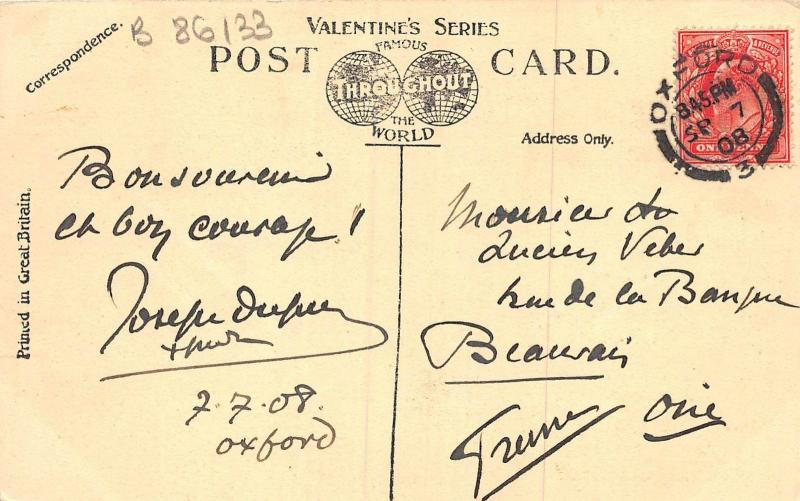 B 86/133
Correspondence.
VALENTINE'S SERIES
POST CARD.
FAMOUS
THROUGHOUT
THE
WORLD
Address Only.
Printed in Great Britain.
OXFORD
8.45 PM
SP 7
08
3
ONE PENNY
Bon souvenir
et bon courage!
Joseph
7.7.08.
Oxford
Monsieur
Lucien Veber
rue de la Banque
Beauvais
Oise
France